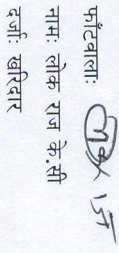 फाँटवालाः
नामः लोक राज के.सी
दर्जाः खरिदार